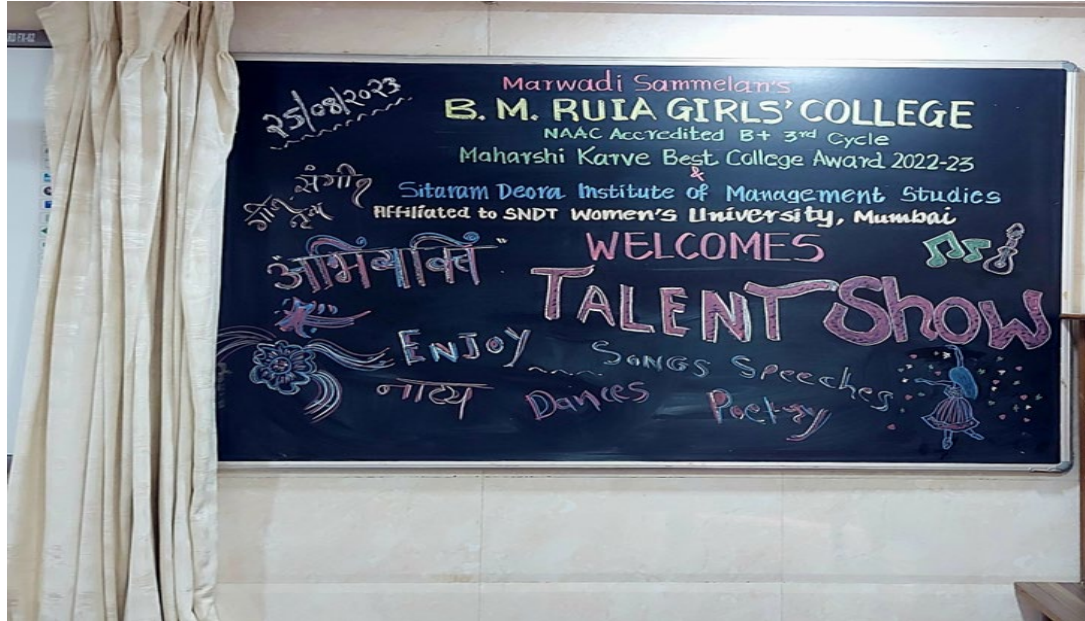 २५/०८/२०२३
Marwadi Sammelan's
B. M. RUIA GIRLS' COLLEGE
NAAC Accredited B+ 3rd Cycle
Maharshi Karve Best College Award 2022-23
&
Sitaram Deora Institute of Management Studies
Affiliated to SNDT Women's University, Mumbai
संगीत
गीत नृत्य
WELCOMES
अभिव्यक्ति"
TALENT Show
ENJOY SONGS Speeches
नाट्य Dances Poetry